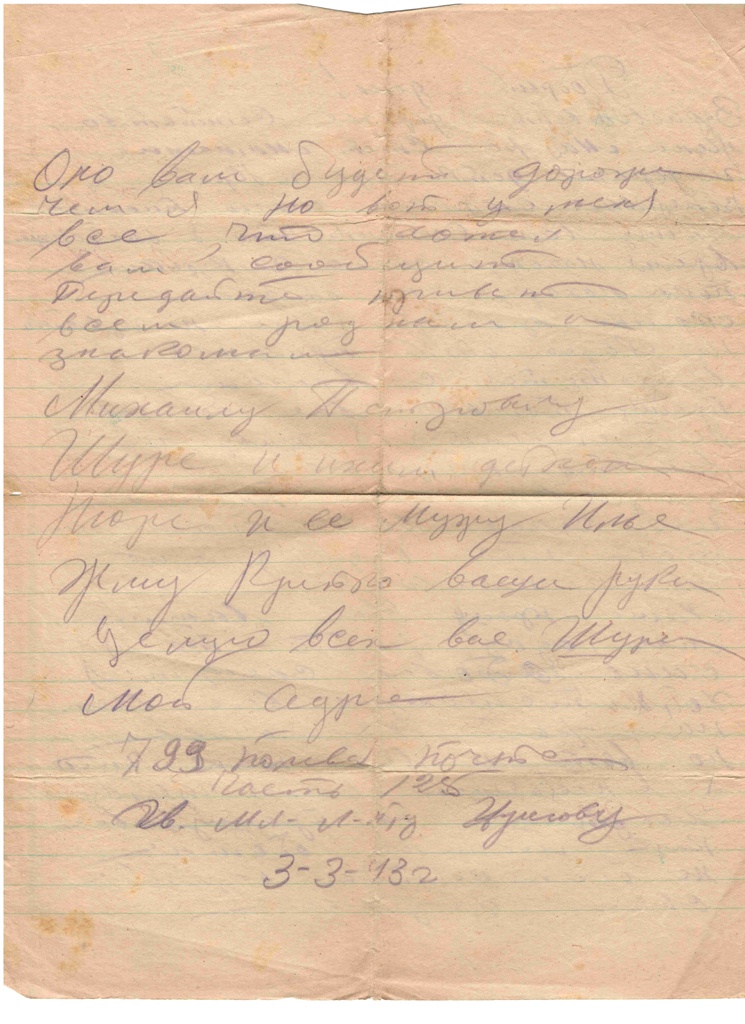 Оно вам будет дороже
чем я но вот у меня
все что хотел
вам сообщить
Передайте привет
всем родным и
знакомым
Михаилу Петровичу
Шуре и ихим деткам
Нюре и ее мужу Илье
Жму Крепко ваши руки
Целую всех вас Шура
Мой адрес
799 полевая почта
часть 125
Гв. мл. л-ту
3-3-43г